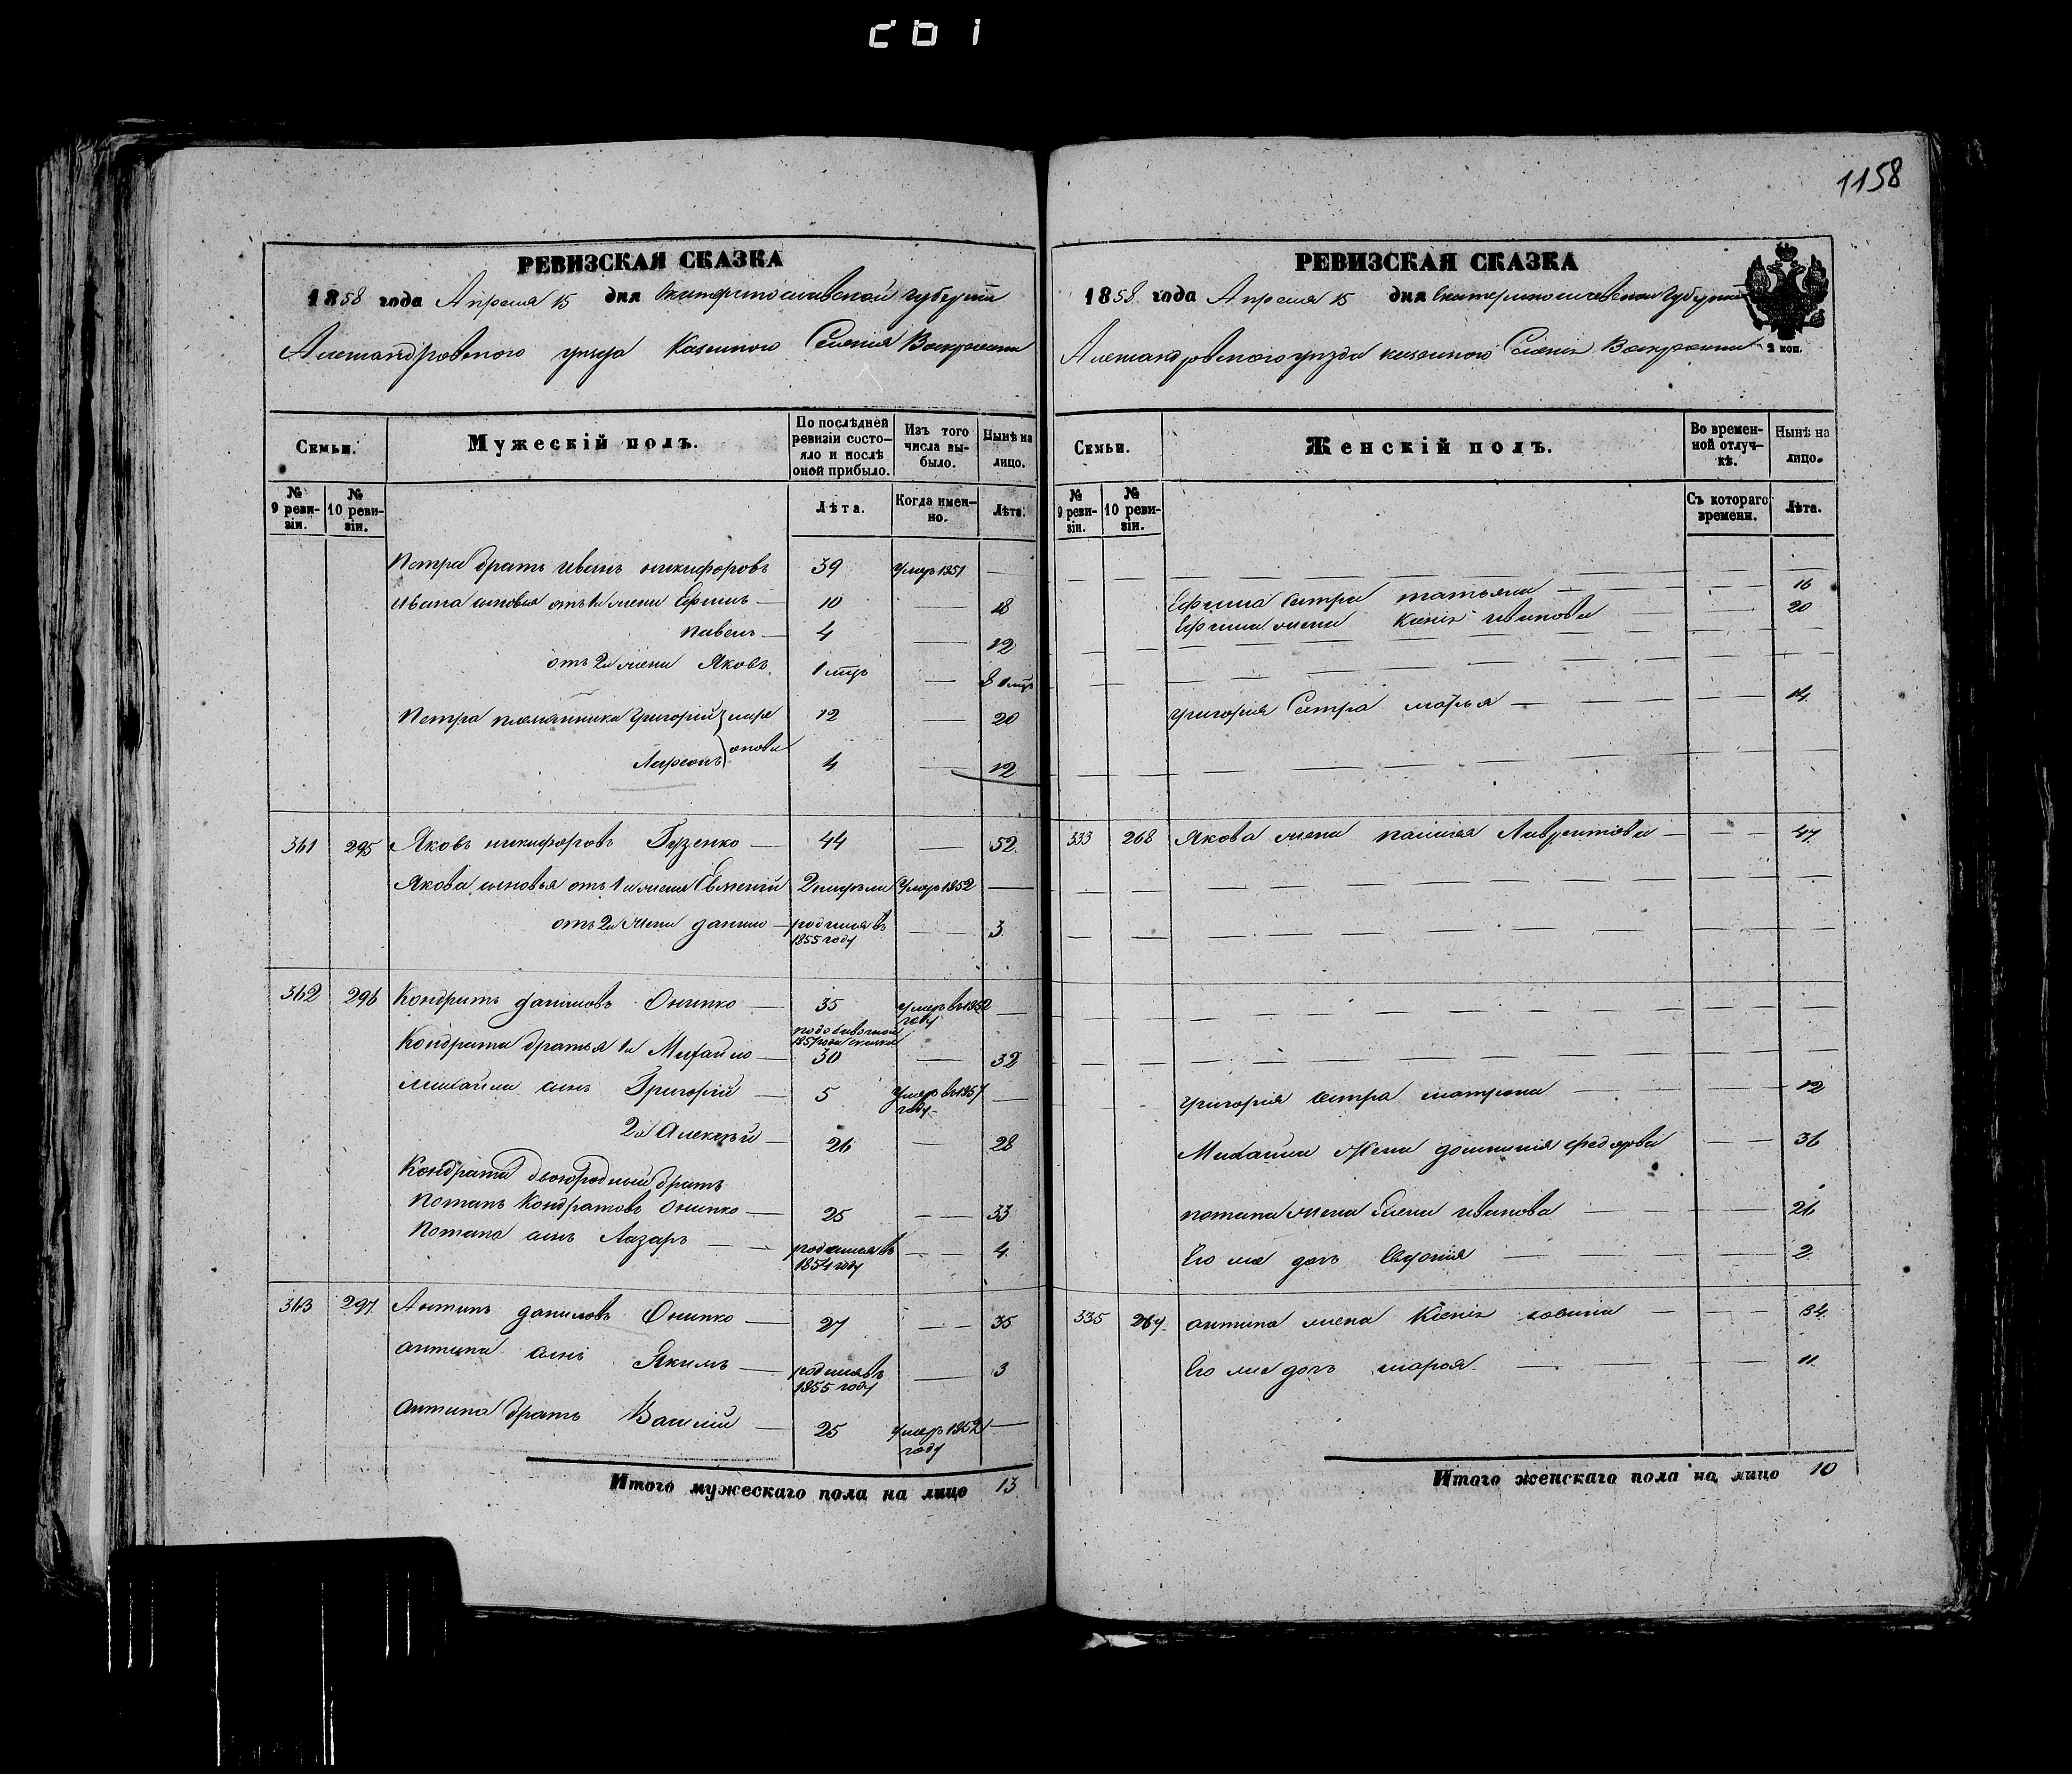 1158
РЕВИЗСКАЯ СКАЗКА
1858 года Апреля 15 дня Екатеринославской губернии
Александровского уезда Казенного Селения Воскресенки
Семьи.
Мужескій полъ.
По послѣдней ревизіи состояло и послѣ оной прибыло.
Изъ того числа выбыло.
Нынѣ на лицо.
№ 9 ревизіи.
№ 10 ревизіи.
Лѣта.
Когда именно.
Лѣта.
Петра братъ Иванъ Никифоровъ 39 Умеръ 1851 —
Ивана сыновья отъ 1й жены Ефимъ — 10 — 18
Павелъ — 4 — 12
отъ 2й жены Яковъ 1 мѣс — 8
Петра племянника Григорій 12 — 20
Ларіонъ 4 — 12
361 295 Яковъ Никифоровъ Гузенко — 44 — 52
Якова сыновья отъ 1й жены Евгеній 2 Умеръ 1852 —
отъ 2й жены Данило — родился въ 1855 году — 3
362 296 Кондратъ Даниловъ Онипко — 35 Умеръ въ 1852 году —
1851 года
Кондрата братья 1й Михайло — 30 — 32
Михайлы сынъ Григорій — 5 Умеръ въ 1857 году —
2й Алексѣй — 26 — 28
Кондрата двоюродный братъ
Потапъ Кондратовъ Онипко — 25 — 33
Потапа сынъ Лазарь — родился въ 1854 году — 4
363 297 Антипъ Даниловъ Онипко — 27 — 35
Антипа сынъ Якимъ — родился въ 1855 году — 3
Антипа братъ Василій — 25 Умеръ 1852 году —
Итого мужескаго пола на лицо 13
РЕВИЗСКАЯ СКАЗКА
1858 года Апреля 15 дня Екатеринославской Губернии
Александровского уезда казенного Селения Воскресенки
2 коп.
Семьи.
Женскій полъ.
Во временной отлучкѣ.
Нынѣ на лицо.
№ 9 ревизіи.
№ 10 ревизіи.
Съ котораго времени.
Лѣта.
Ефима сестра Татьяна — 16
Ефима жена Ксенія Иванова — 20
Григорія Сестра Марья — 14
333 268 Якова жена Пелагея Лаврентіева — 47
Григорія сестра Матрена — 12
Михайлы жена Домникія Федорова — 36
Потапа жена Елена Иванова — 26
Его же дочь Евдокія — 2
335 269 Антипа жена Ксенія Савина — 34
Его же дочь Марья — 11
Итого женскаго пола на лицо 10